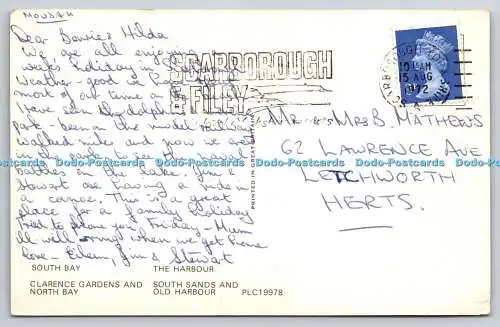 MONDAY
Dear Bernie & Hilda
We are all enjoying
weeks holiday in
Weather-good
most of our time on
I have seen the dolphins
park - been on the model railway
walked miles and now we are
in a park to see the naval
battles on the lake. Jim &
Stewart are having a ride in
a canoe. This is a great
place for a family holiday
Tried to phone you Friday - Mum
ill will ring when we get home
love - Eileen, Jim & Stewart
SOUTH BAY THE HARBOUR
CLARENCE GARDENS AND SOUTH SANDS AND
NORTH BAY OLD HARBOUR PLC19978
SCARBOROUGH
& FILEY
SCARBOROUGH
15 AUG
1972
PRINTED IN
Mr & Mrs B. MATHEWS
62 LAWRENCE AVE
LETCHWORTH
HERTS.
Dodo-Postcards Dodo-Postcards Dodo-Postcards Dodo-Postcards Dodo-Postcards